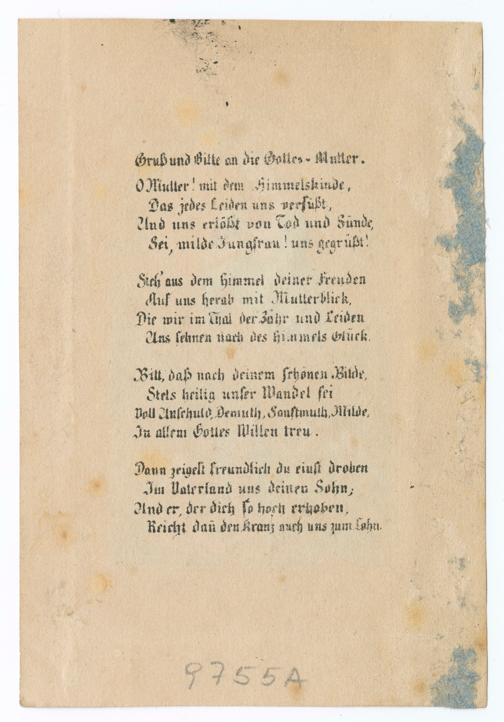 Gruß und Bitte an die Gottes-Mutter.
O Mutter! mit dem Himmelskinde,
Das jedes Leiden uns versüßt,
Und uns erlößt von Tod und Sünde,
Sei, milde Jungfrau! uns gegrüßt!
Sieh' aus dem Himmel deiner Freuden
Auf uns herab mit Mutterblick,
Die wir im Thal der Zähr und Leiden
Uns sehnen nach des Himmels Glück.
Bitt, daß nach deinem schönen Bilde,
Stets heilig unser Wandel sei
Voll Unschuld, Demuth, Sanftmuth, Milde,
In allem Gottes Willen treu.
Dann zeigest freundlich du einst droben
Im Vaterland uns deinen Sohn;
Und er, der dich so hoch erhoben,
Reicht dan den Kranz auch uns zum Lohn.
9755A